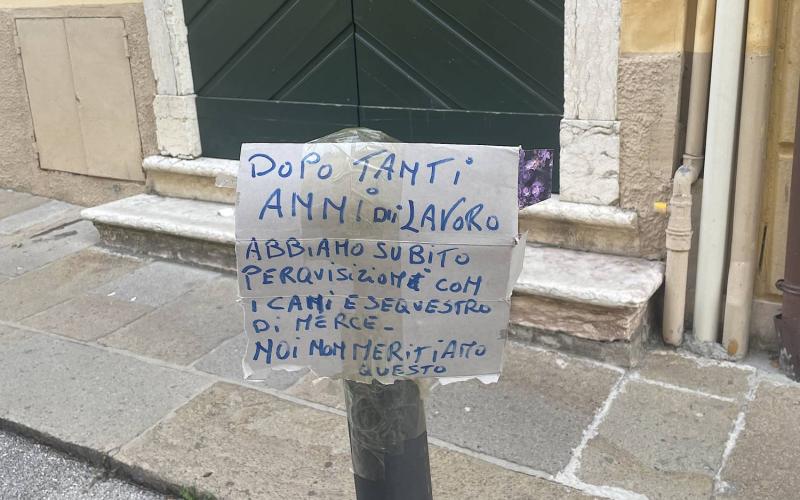 DOPO TANTI
ANNI DI LAVORO
ABBIAMO SUBITO
PERQUISIZIONE CON
I CANI E SEQUESTRO
DI MERCE-
NOI NON MERITIAMO
QUESTO